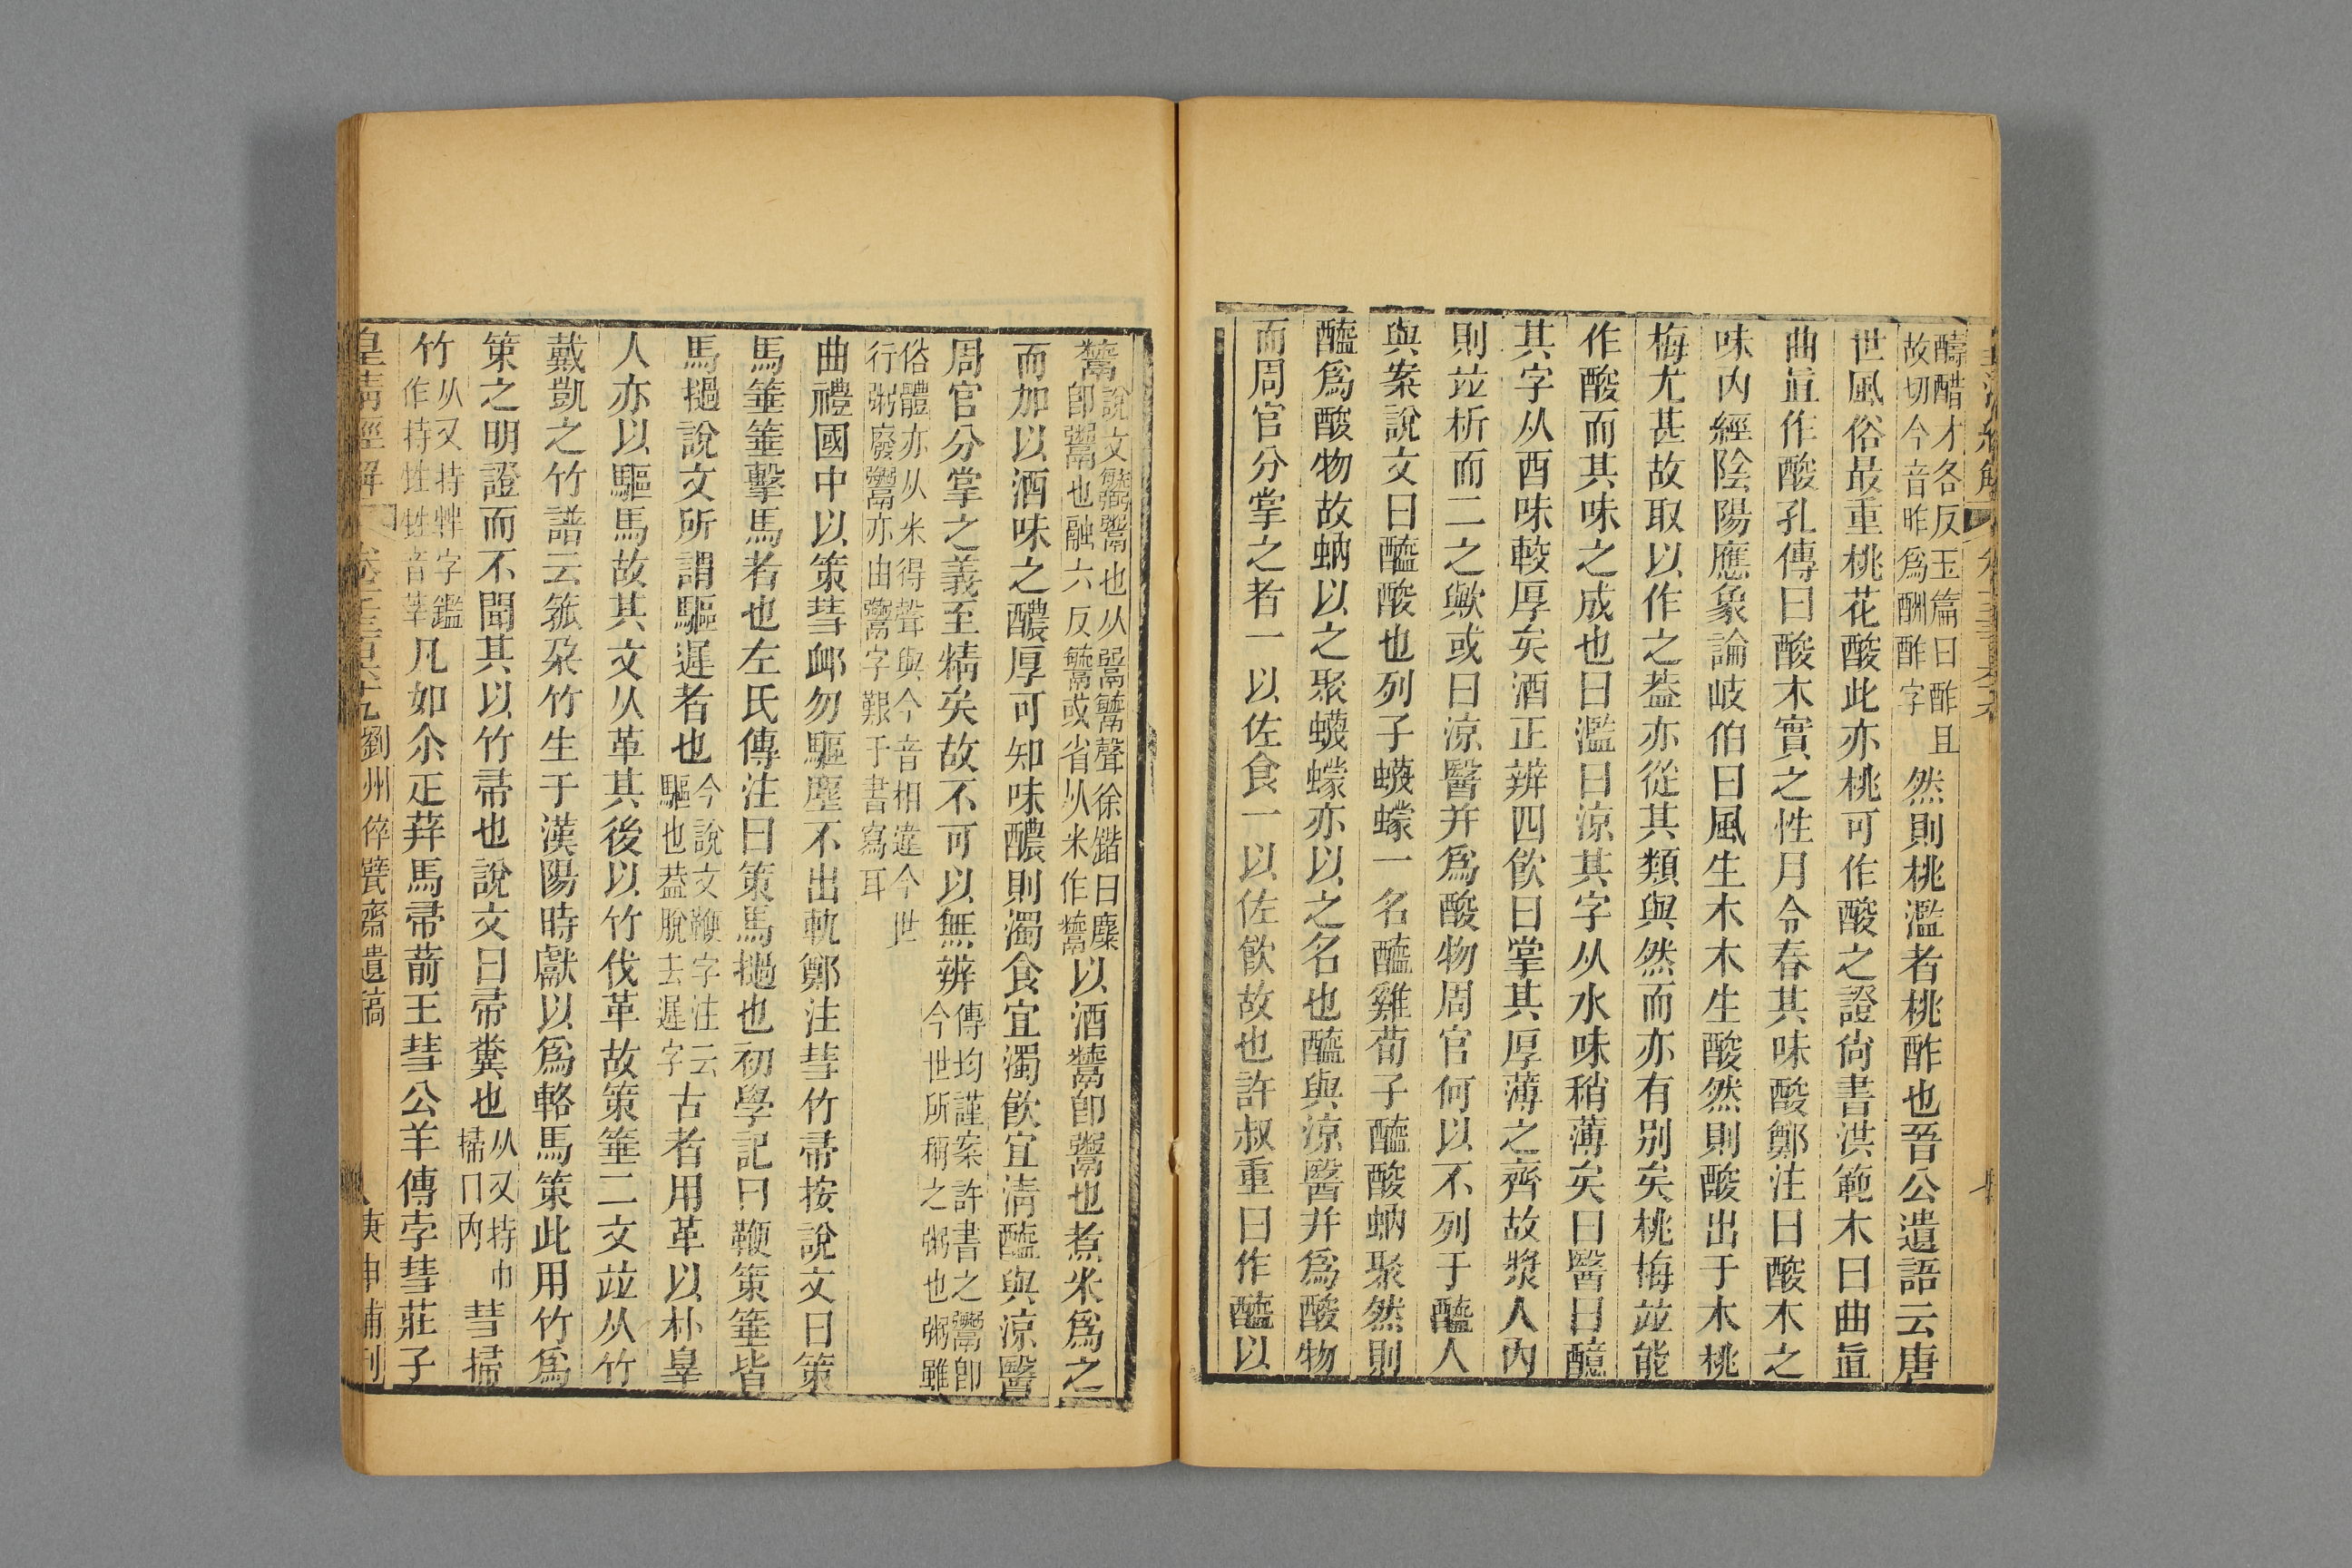 醻醋才各反玉篇曰酢且
故切今音昨爲酬酢字
然則桃濫者桃酢也吾公遺語云唐
世風俗最重桃花酸此亦桃可作酸之證尙書洪範木曰曲直
曲直作酸孔傳曰酸木實之性月令春其味酸鄭注曰酸木之
味內經陰陽應象論岐伯曰風生木木生酸然則酸出于木桃
梅尤甚故取以作之葢亦從其類與然而亦有別矣桃梅竝能
作酸而其味之成也曰濫曰涼其字从水味稍薄矣曰醫曰醷
其字从酉味較厚矣酒正辨四飮曰掌其厚薄之齊故漿人內
則竝析而二之歟或曰涼醫幷爲酸物周官何以不列于醯人
與案說文曰醯酸也列子蠛蠓一名醯雞荀子醯酸蚋聚然則
醯爲酸物故蚋以之聚蠛蠓亦以之名也醯與涼醫幷爲酸物
而周官分掌之者一以佐食一以佐飮故也許叔重曰作醯以
說文鬻也从聲徐鍇曰麋
卽鬻也融六反或省从米作
以酒卽鬻也煮米爲之
而加以酒味之醲厚可知味醲則濁食宜濁飮宜淸醯與涼醫
周官分掌之義至精矣故不可以無辨
傳均謹案許書之鬻卽
今世所稱之粥也粥雖
俗體亦从米得聲與今音相違今世
行粥廢鬻亦由鬻字艱于書寫耳
曲禮國中以策彗䘏勿驅塵不出軌鄭注彗竹帚按說文曰策
馬箠箠擊馬者也左氏傳注曰策馬檛也初學記曰鞭策箠皆
馬檛說文所謂驅遲者也
今說文鞭字注云
驅也葢脫去遲字
古者用革以朴辠
人亦以驅馬故其文从革其後以竹伐革故策箠二文竝从竹
戴凱之竹譜云箛朶竹生于漢陽時獻以爲輅馬策此用竹爲
策之明證而不聞其以竹帚也說文曰帚糞也
从又持巾
掃冂內
彗掃
竹
从又持字鑑
作持甡甡音莘
凡如尒疋荓馬帚葥王彗公羊傳孛彗莊子
皇淸經解
劉州倅甓齋遺稿
庚申補刊